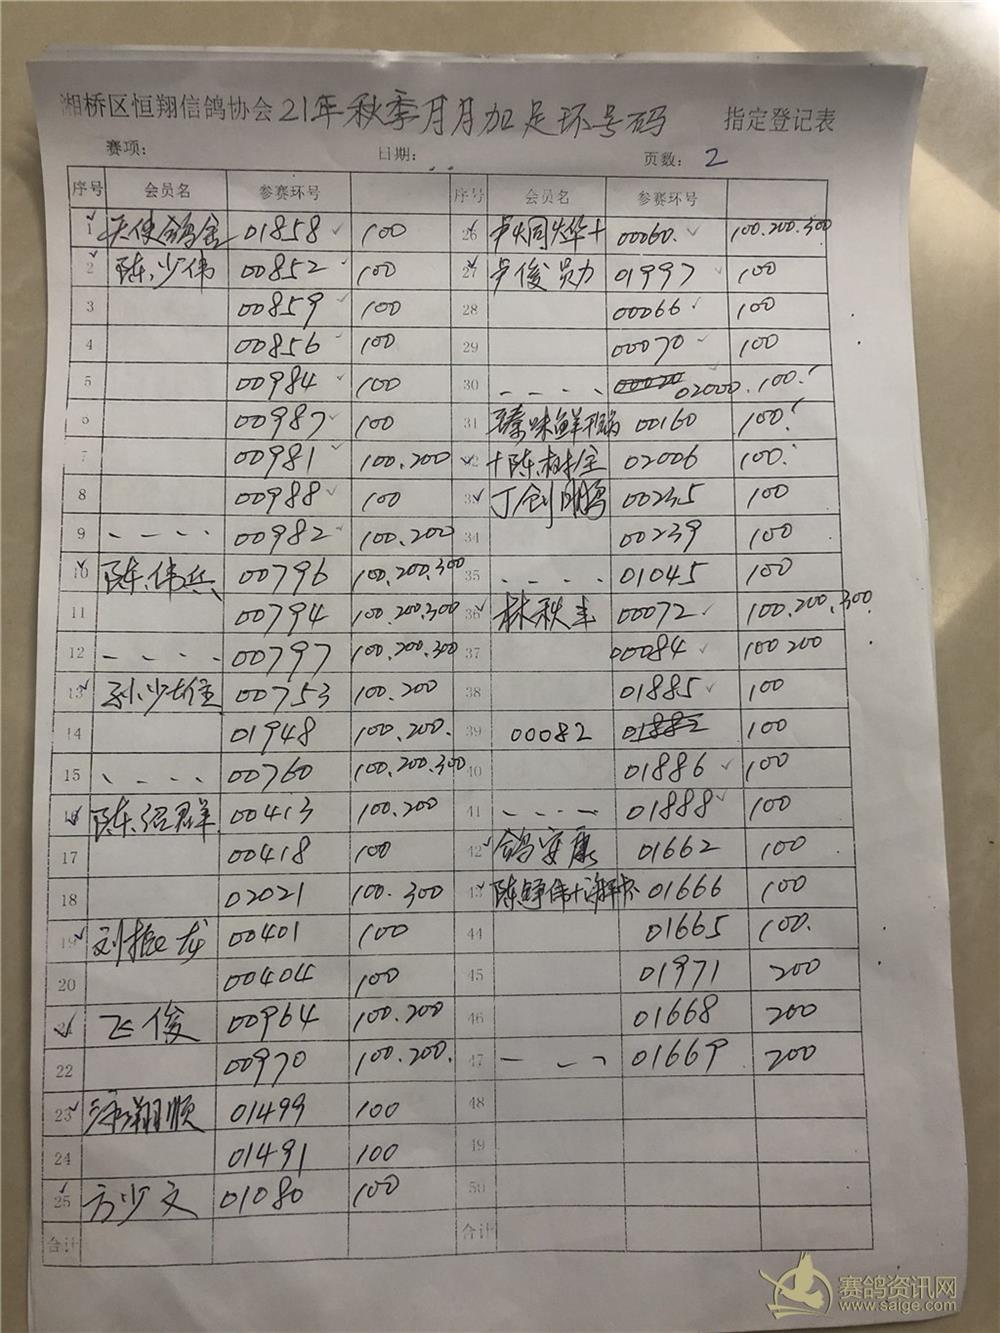 湘桥区恒翔信鸽协会21年秋季月月加足环号码 指定登记表
赛项: 日期: 页数: 2
序号 会员名 参赛环号 序号 会员名 参赛环号
1 天使鸽舍 01858 100 26 00060 100.200.300
2 陈少伟 00852 100 27 卢俊勋 01997 100
3 00859 100 28 00066 100
4 00856 100 29 00070 100
5 00984 100 30 02000 100
6 00987 100 31 臻味鲜 00160 100
7 00981 100.200 32 02006 100
8 00988 100 33 丁创鹏 00235 100
9 00982 100.200 34 00239 100
10 陈伟兵 00796 100.200.300 35 01045 100
11 00794 100.200.300 36 林秋丰 00072 100.200.300
12 00797 100.200.300 37 00084 100 200
13 孙少佳 00753 100.200 38 01885 100
14 01948 100.200 39 00082 01882 100
15 00760 100.200.300 40 01886 100
16 陈绍群 00413 100.200 41 01888 100
17 00418 100 42 鸽安康 01662 100
18 02021 100.300 43 01666 100
19 刘振龙 00401 100 44 01665 100
20 00404 100 45 01971 200
21 飞俊 00964 100.200 46 01668 200
22 00970 100.200 47 01669 200
23 翔顺 01499 100 48
24 01491 100 49
25 方少文 01080 100 50
合计 合计
赛鸽资讯网
www.saige.com